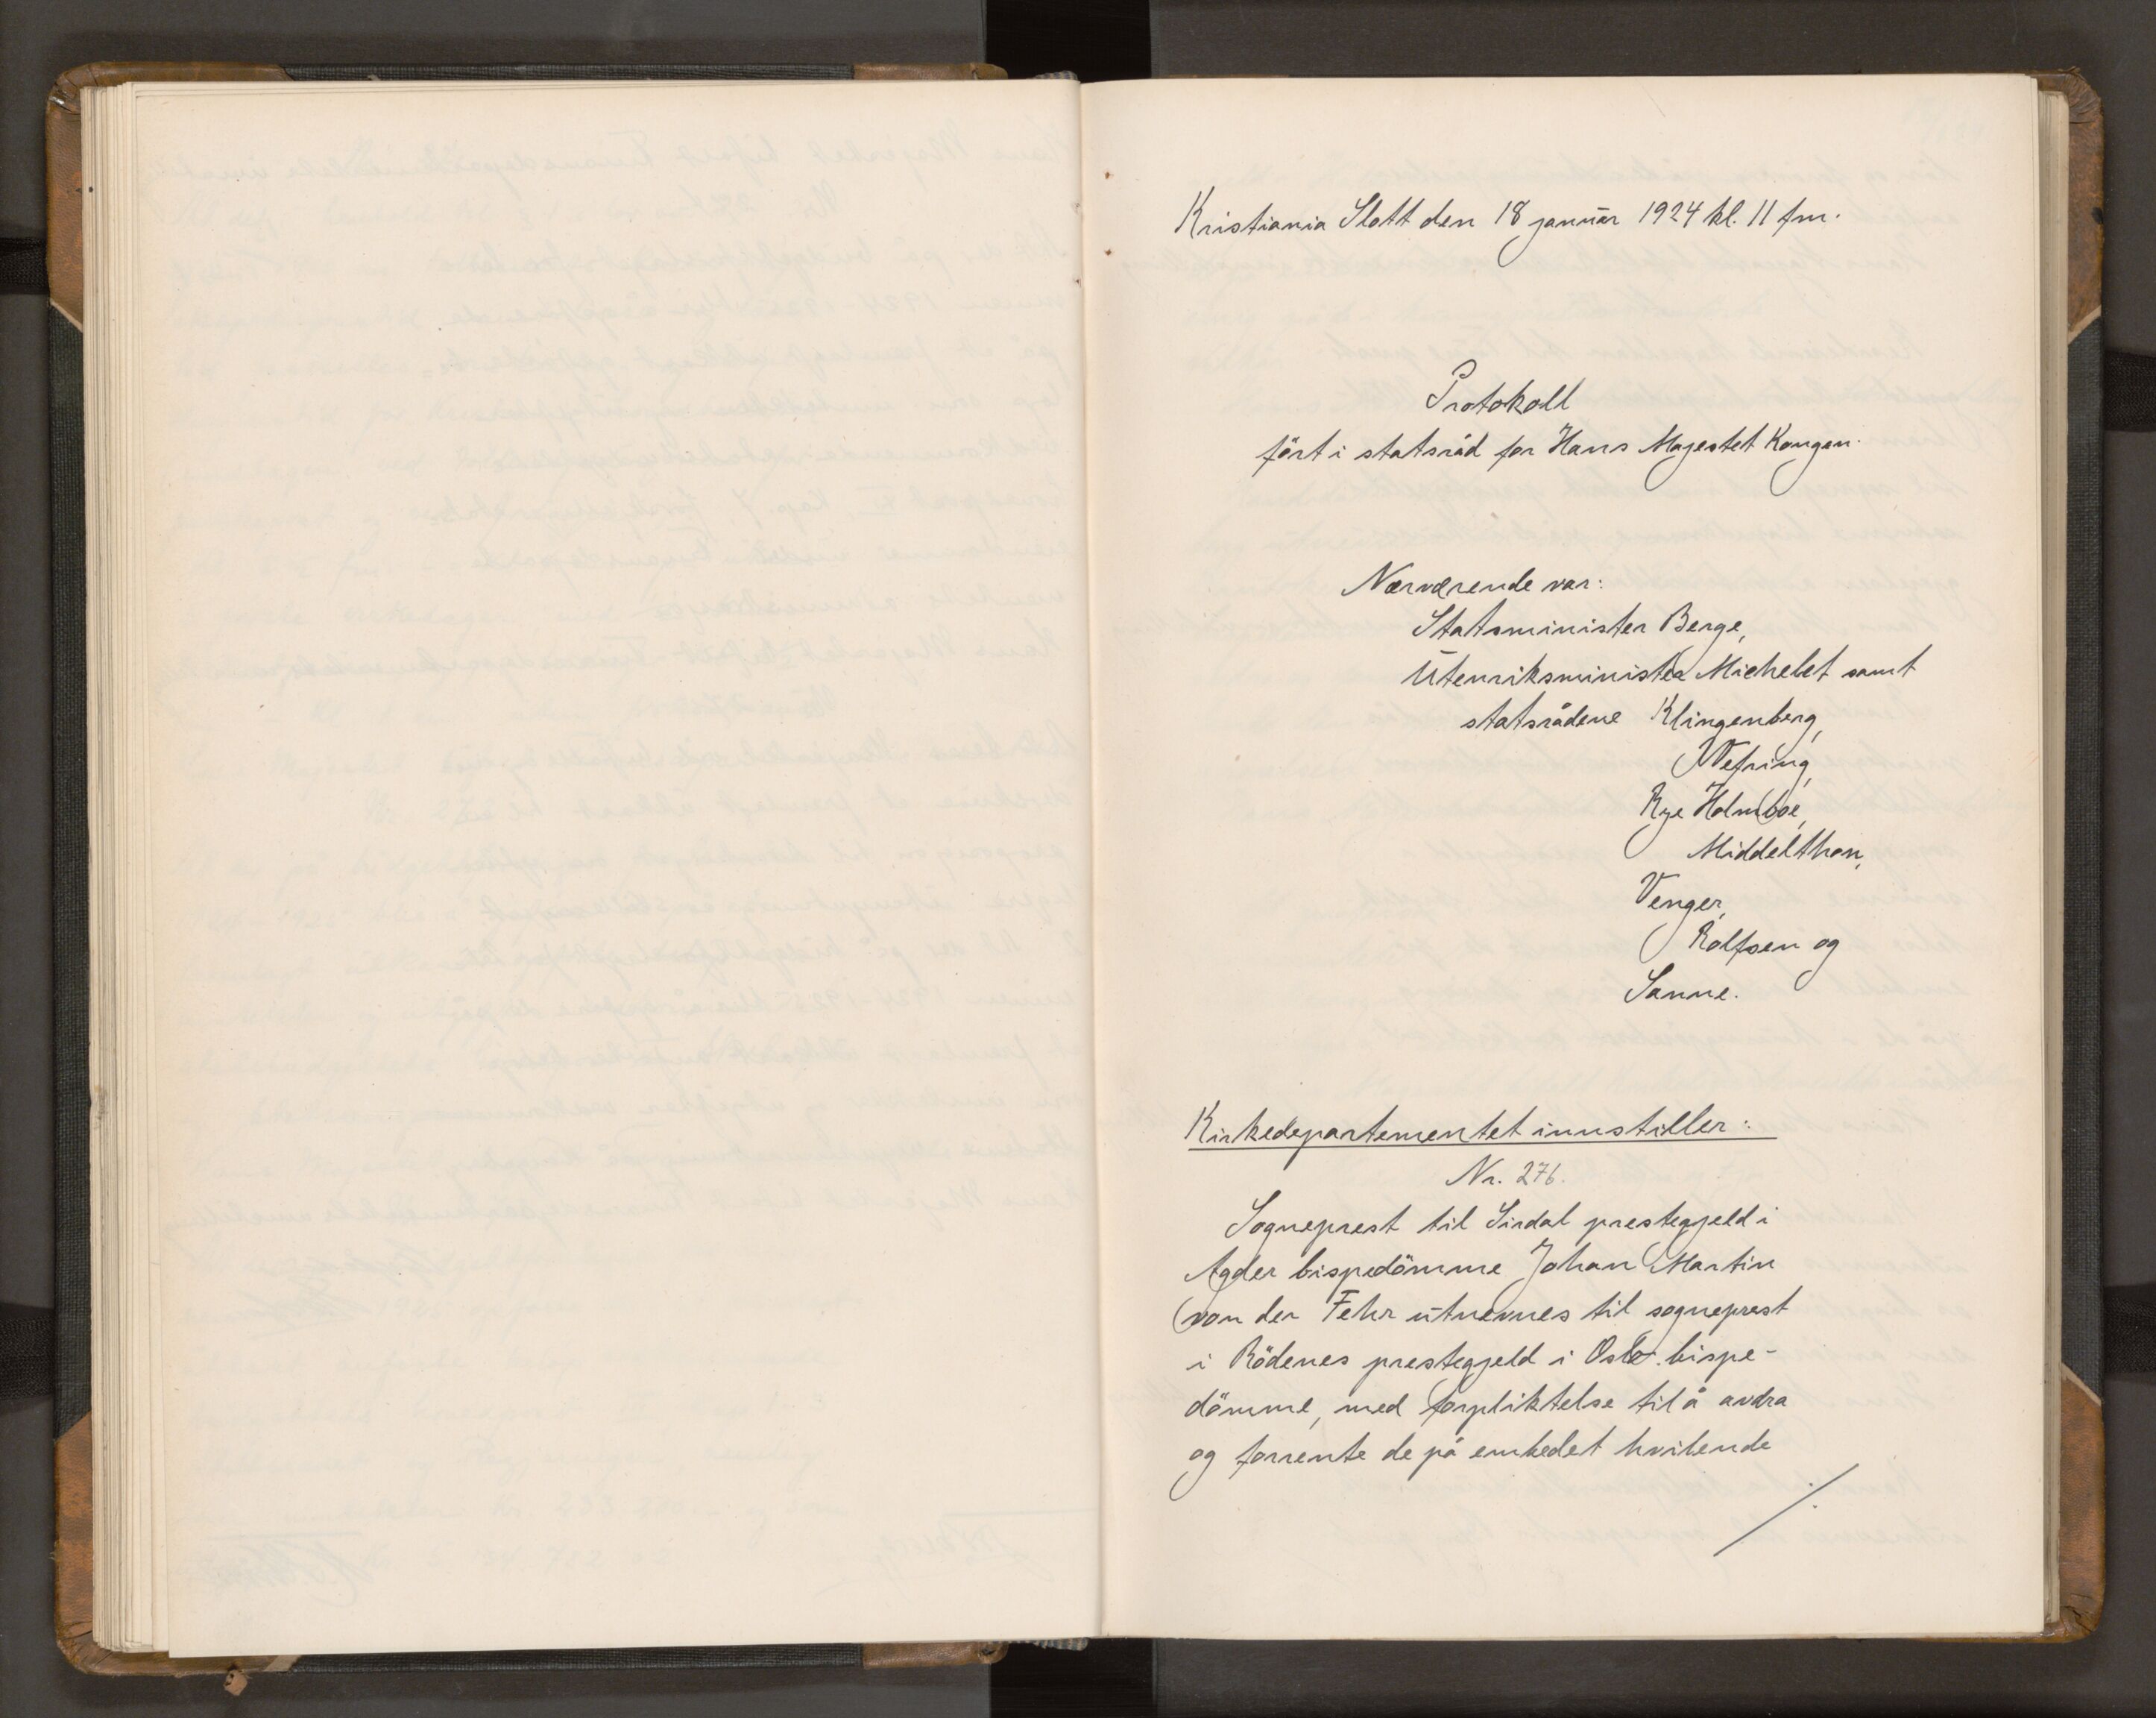 Kristiania Slott den 18 januar 1924 kl. 11 fm.
Protokoll
fört i statsråd for Hans Majestet Kongen.
Nærværende var:
Statsminister Berge,
Utenriksminister Michelet samt
statsrådene Klingenberg,
Wefring,
Rye Holmboe,
Middelthon,
Venger,
Rolfsen og
Sanne.
Kirkedepartementet innstiller:
Nr. 276.
Sogneprest til Sirdal prestegjeld i
Agder bispedömme Johan Martin
von der Fehr utnevnes til sogneprest
i Rödenes prestegjeld i Oslo bispe-
dömme, med forpliktelse til å avdra
og forrente de på embedet hvilende
./.